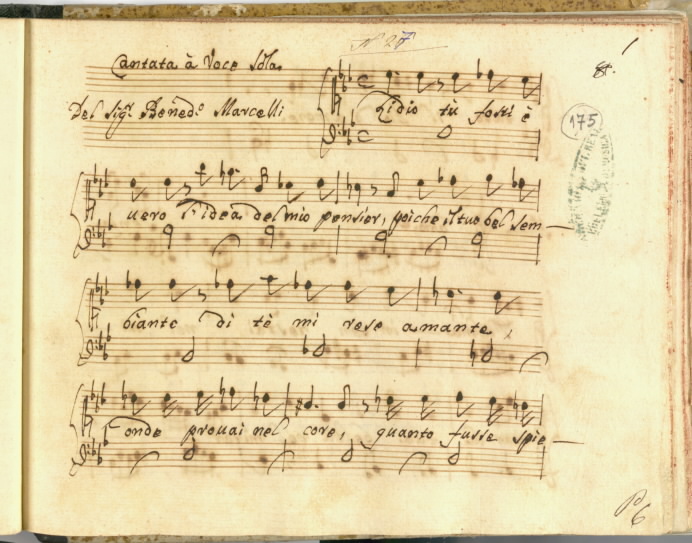 N 27
1
Cantata à Voce Sola
Del Sigr. Bened.o Marcelli
Lidio tù fosti è
175
uero l'idea del mio pensier, poiche il tuo bel sem-
biante di tè mi rese amante,
onde prouai nel core, quanto fusse spie-
6